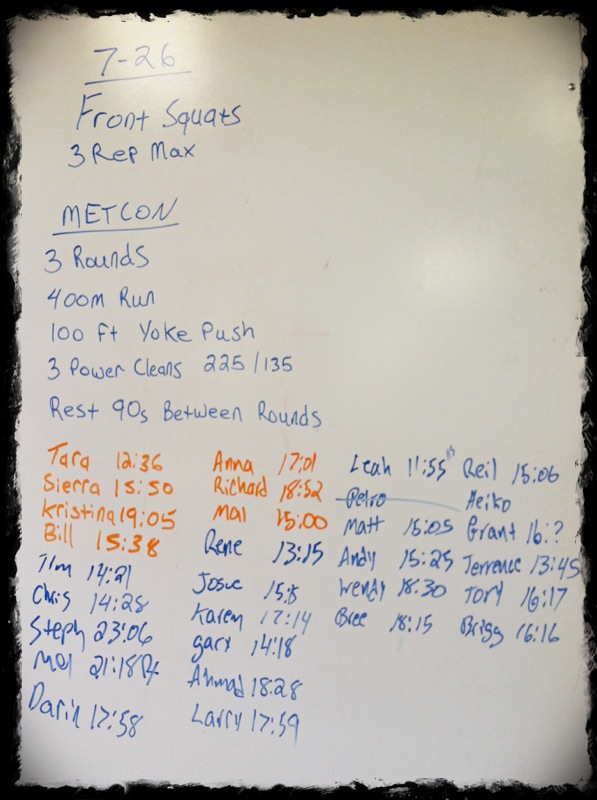 7-26
Front Squats
3 Rep Max
METCON
3 Rounds
400m Run
100 Ft Yoke Push
3 Power Cleans 225/135
Rest 90s Between Rounds
Tara 12:36
Sierra 15:50
Kristina 19:05
Bill 15:38
Tim 14:21
Chris 14:28
Steph 23:06
Mel 21:18
Darin 17:58
Anna 17:01
Richard 18:52
Mal 15:00
Rene 13:15
Josue
Karen 17:14
gary 14:18
Ahmad 18:28
Larry 17:59
Leah 11:55
Pedro
Matt 15:05
Andy 15:25
Wendy 18:30
Bree 18:15
Reil 15:06
Heiko
Grant 16:?
Terrence 13:45
Tory 16:17
Brigg 16:16